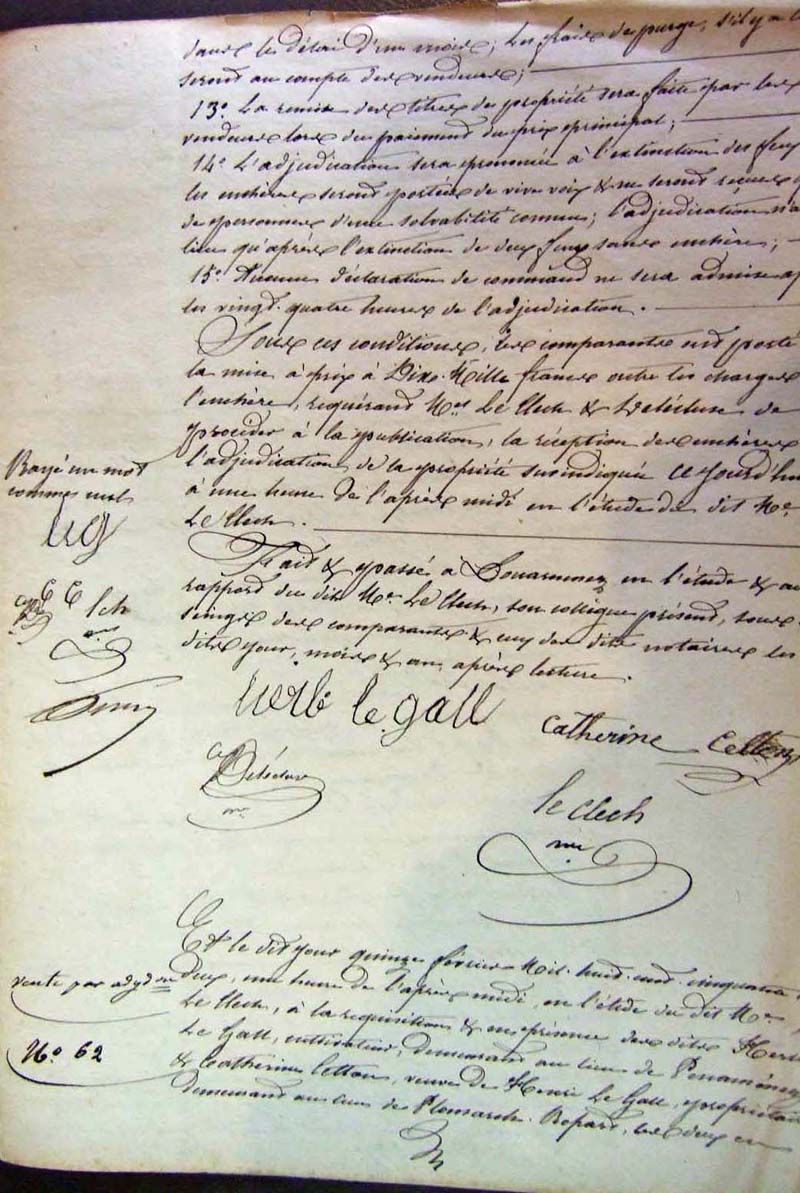 dans le délai d'un mois; les frais de purge, s'il y a
seront au compte des vendeurs;
13º La remise des titres de propriété sera faite par les
vendeurs lors du paiement du prix principal;
14º L'adjudication sera prononcée à l'extinction des feux
les enchères seront portées de vive voix & ne seront reçues
de personnes d'une solvabilité connue; l'adjudication n'a
lieu qu'après l'extinction de deux feux sans enchère;
15º Aucune déclaration de command ne sera admise ap
les vingt-quatre heures de l'adjudication.
Sous ces conditions, les comparants ont porté
la mise à prix à Dix-Mille francs outre les charges
l'enchère, requérant Mes Le Clech & Delécluse de
procéder à la publication, la réception des enchères
l'adjudication de la propriété susindiquée ce jourd'hui
à une heure de l'après midi en l'étude du dit Me
Le Clech.
Rayé un mot
comme nul
Fait & passé à Douarnenez en l'étude & au
rapport du dit Me Le Clech, son collègue présent, sous
seings des comparants & ceux des dits notaires les
dits jour, mois & an, après lecture.
lch
herlé le gall
Catherine Celton
Delécluse
le Clech
nre
Et le dit jour quinze février Mil-huit-cent-cinquante
vente par adjdon
deux, une heure de l'après midi, en l'étude du dit Me
Le Clech, à la requisition & en présence des dits Her
Nº 62
Le Gall, cultivateur, demeurant au lieu de Penaméné
& Catherine Celton, veuve de Henri Le Gall, propriétai
demeurant au lieu de Plomarch